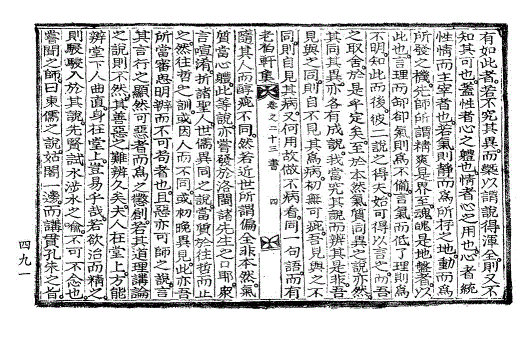 有如此者若不究其異而槩以謂說得渾全則又不
知其可也蓋性者心之體也情者心之用也心者統
性情而主宰者也若氣則靜而爲所行之地動而爲
所發之機先師所謂精爽是界至魂魄是地盤者以
此也言理而卻氣則爲不備言氣而低了理則爲
不明知此而後彼二說之得失始可得以言之而吾
之取舍於是乎定矣至於本然氣質同異之說亦然
其同其異亦各有成說我當究其說而辨其是非吾
見與之同則自不見其爲病初無可疵吾見與之不
同則自見其病又何用故做不病看同一句語而有
老柏軒集 卷之二十三 書 四
隨其人而醇疵不同然若近世所謂偏全非本然氣
質當心體此等說亦嘗發於洛閩諸先生之口耶衆
言喧淆折諸聖人世儒異同之說當質於往哲而止
之然往哲之訓或因人而不同或初晚異見此亦吾
所當審思明辨而不可苟者也且惡亦可師之說言
其言行之顯然可惡者而爲之懲創若其道理講論
之說則不然其善惡之難辨久矣夫人在堂上方能
辨堂下人曲直身在堂上豈易乎哉若欲治而精之
則駸駸入於其說先賢試水涉水之喩不可不念也
嘗聞之師曰東儒之說姑閣一邊而講貫孔朱之旨
四九一